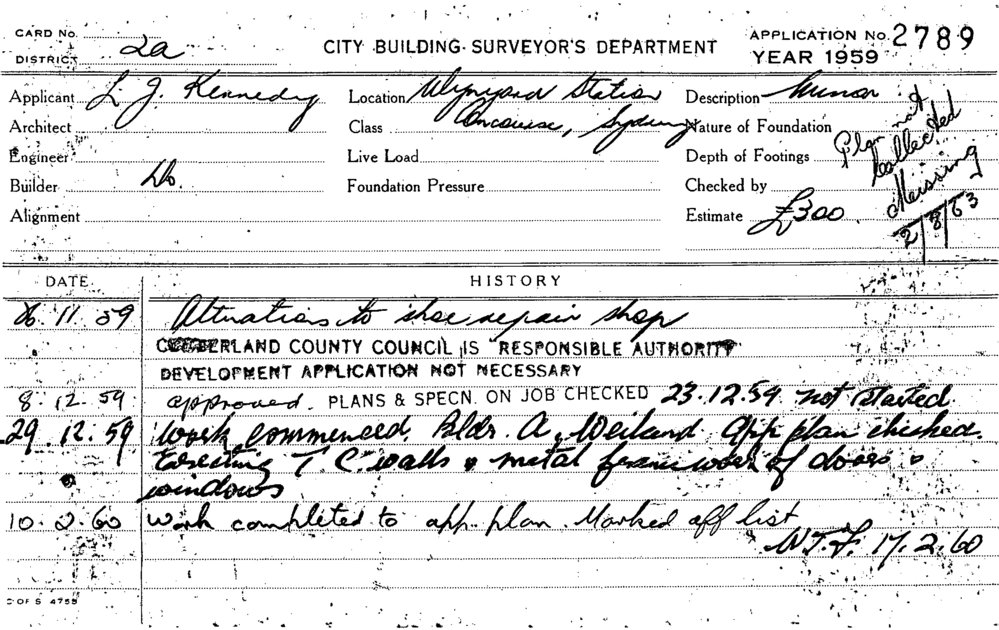 CARD No.
DISTRICT 2a
CITY BUILDING SURVEYOR'S DEPARTMENT
APPLICATION No. 2789
YEAR 1959
Applicant L J. Kennedy
Location Wynyard Station
Description Minor
Architect
Class Concourse, Sydney
Nature of Foundation
Engineer
Live Load
Depth of Footings
Builder Do.
Foundation Pressure
Checked by
Alignment
Estimate £300.
Plan not
Collected
Missing
2/8/63
DATE
HISTORY
26.11.59 Alterations to shoe repair shop
CUMBERLAND COUNTY COUNCIL IS RESPONSIBLE AUTHORITY
DEVELOPMENT APPLICATION NOT NECESSARY
8.12.59 approved. PLANS & SPECN. ON JOB CHECKED 23.12.59 not started
29.12.59 Work commenced. Bldr. A. Weiland App plan checked.
Erecting T.C. walls & metal framework of doors &
windows
10.2.60 Work completed to app. plan. Marked off list
W.T.F. 17.2.60
C OF S 4755